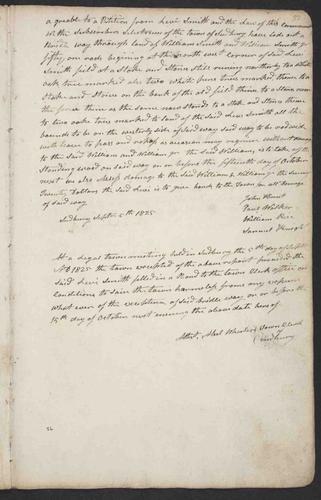 agreeable to a Petition from Levi Smith and the Law of this Commonwealth
We the Subscribers Selectmen of the town of Sudbury have laid out a
Bridle way through land of William Smith and William Smith Jr
fifty one rods beginning at the south west corner of said Levi
Smith field at a Stake and Stons then running northerly to a white
oak tree marked also two white pine trees marked then to a
Stake and Stons on the bank of the old field then to a stone near
the fence then as the same now stands to a Stake and Stons then
to two oak trees marked to land of the said Levi Smith all the
bounds to be on the westerly side of said way said way to be rods wide
with leave to pass and repass as occasion may require without damage
to the said William and William Jr the said William is to take off the
Standing wood on said way on or before the fifteenth day of October
next we also Assess damage to the said William & William Jr the sum of
Twenty Dollars the said Levi is to give bond to the Town for all damage
of said way
John Hunt
Paul Walker
William Rice
Samuel
Sudbury Septr 5th 1825
At a legal town meeting held in Sudbury the 5th day of Septr
AD 1825 the town accepted of the above report provided the
said Levi Smith filled in a Bond to the Town Clerk office on
Conditions to save the town harmless from any expence
what ever of the exceptions of said bridle way on or before the
15th day of October next ensuing the above date here of
Attest, Abel Wheeler Town Clerk
Sudbury